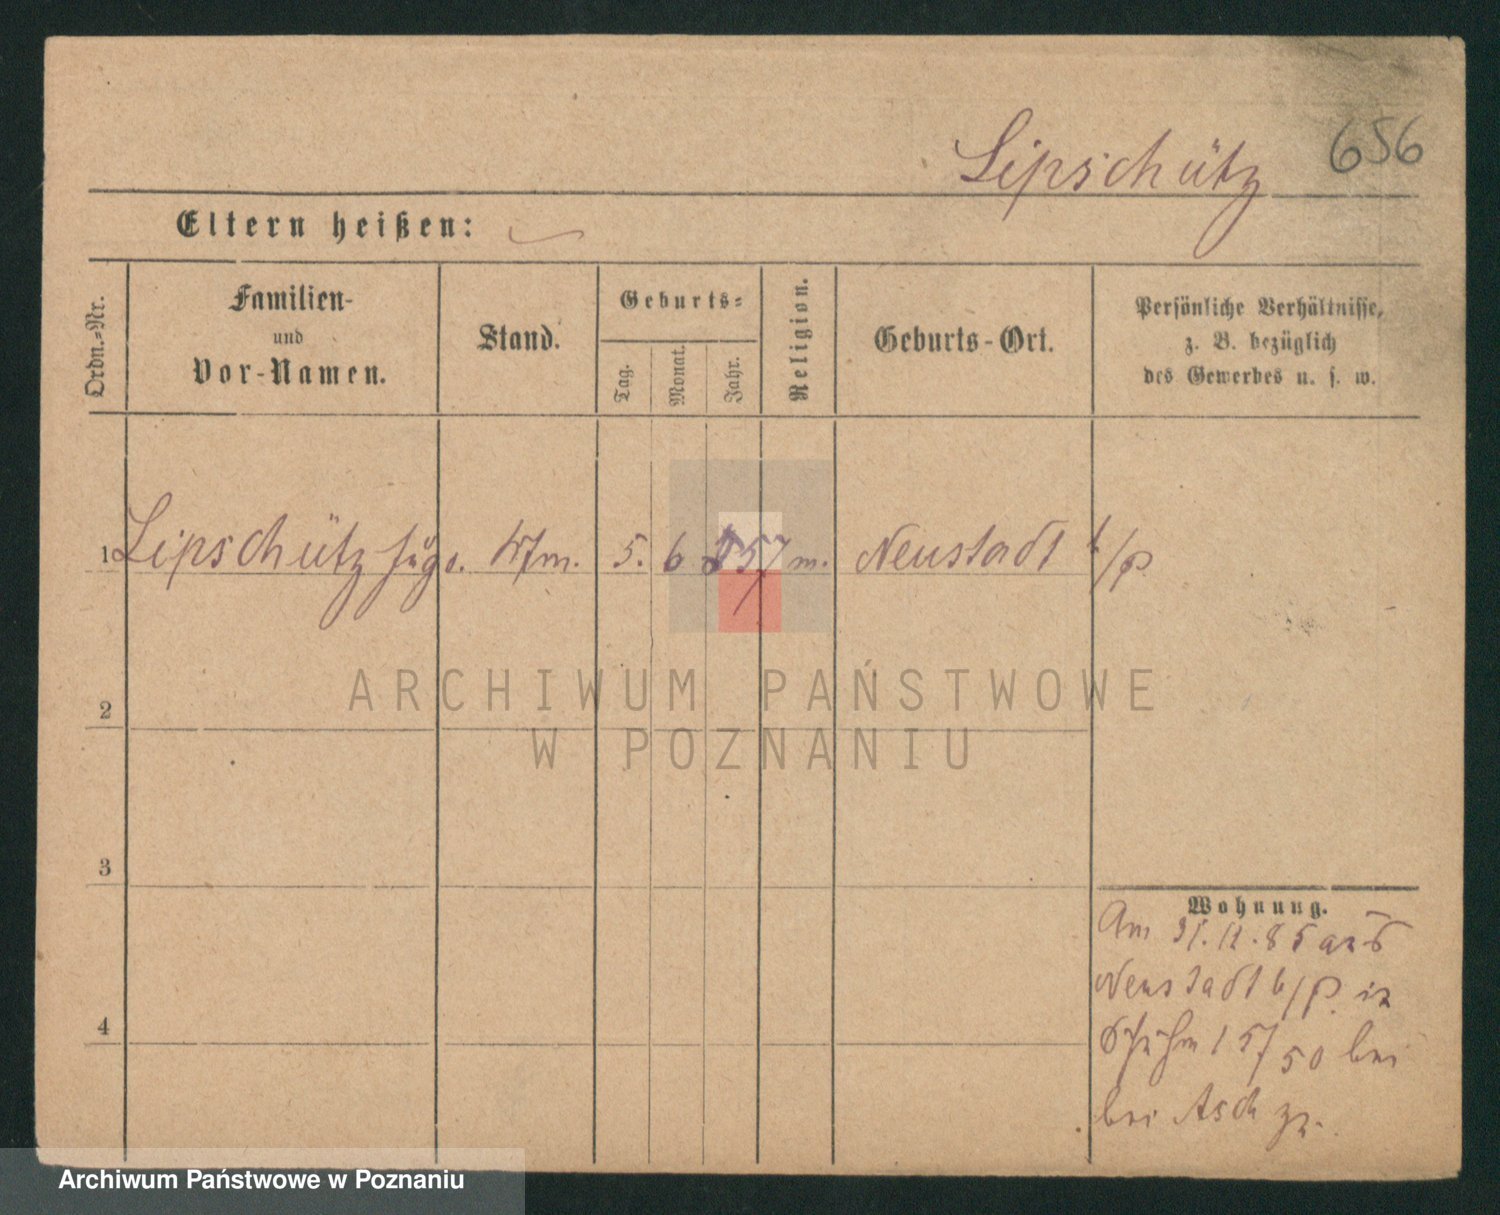 Lipschütz 656
Eltern heißen:
Ordn.-Nr.
Familien-
und
Vor-Namen.
Stand.
Geburts-
Tag.
Monat.
Jahr.
Religion.
Geburts-Ort.
Persönliche Verhältnisse,
z. B. bezüglich
des Gewerbes u. s. w.
1 Lipschütz Hugo. Kfm. 5. 6 57 m. Neustadt b/P.
ARCHIWUM PAŃSTWOWE
W POZNANIU
2
3
4
Wohnung.
Am 31. 12. 85 aus
Neustadt b/P. in
157/50 bei
bei Asch zu.
Archiwum Państwowe w Poznaniu